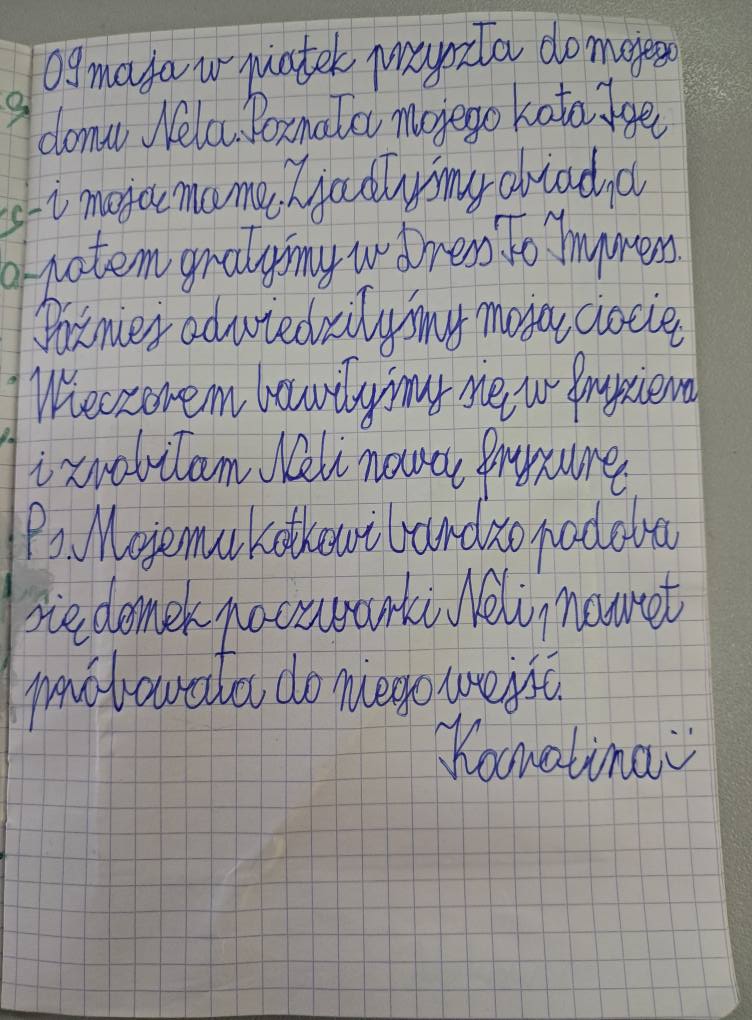 09 maja w piątek przyszła do mojego
domu Nela. Poznała mojego kota Igę
i moją mamę. Zjadłyśmy obiad, a
potem grałyśmy w Dress To Impress.
Później odwiedziłyśmy moją ciocię.
Wieczorem bawiłyśmy się w fryziera
i zrobiłam Neli nową fryzurę.
Ps. Mojemu kotkowi bardzo podoba
się domek poczwarki Neli, nawet
próbowała do niego wejść.
Karolina ü